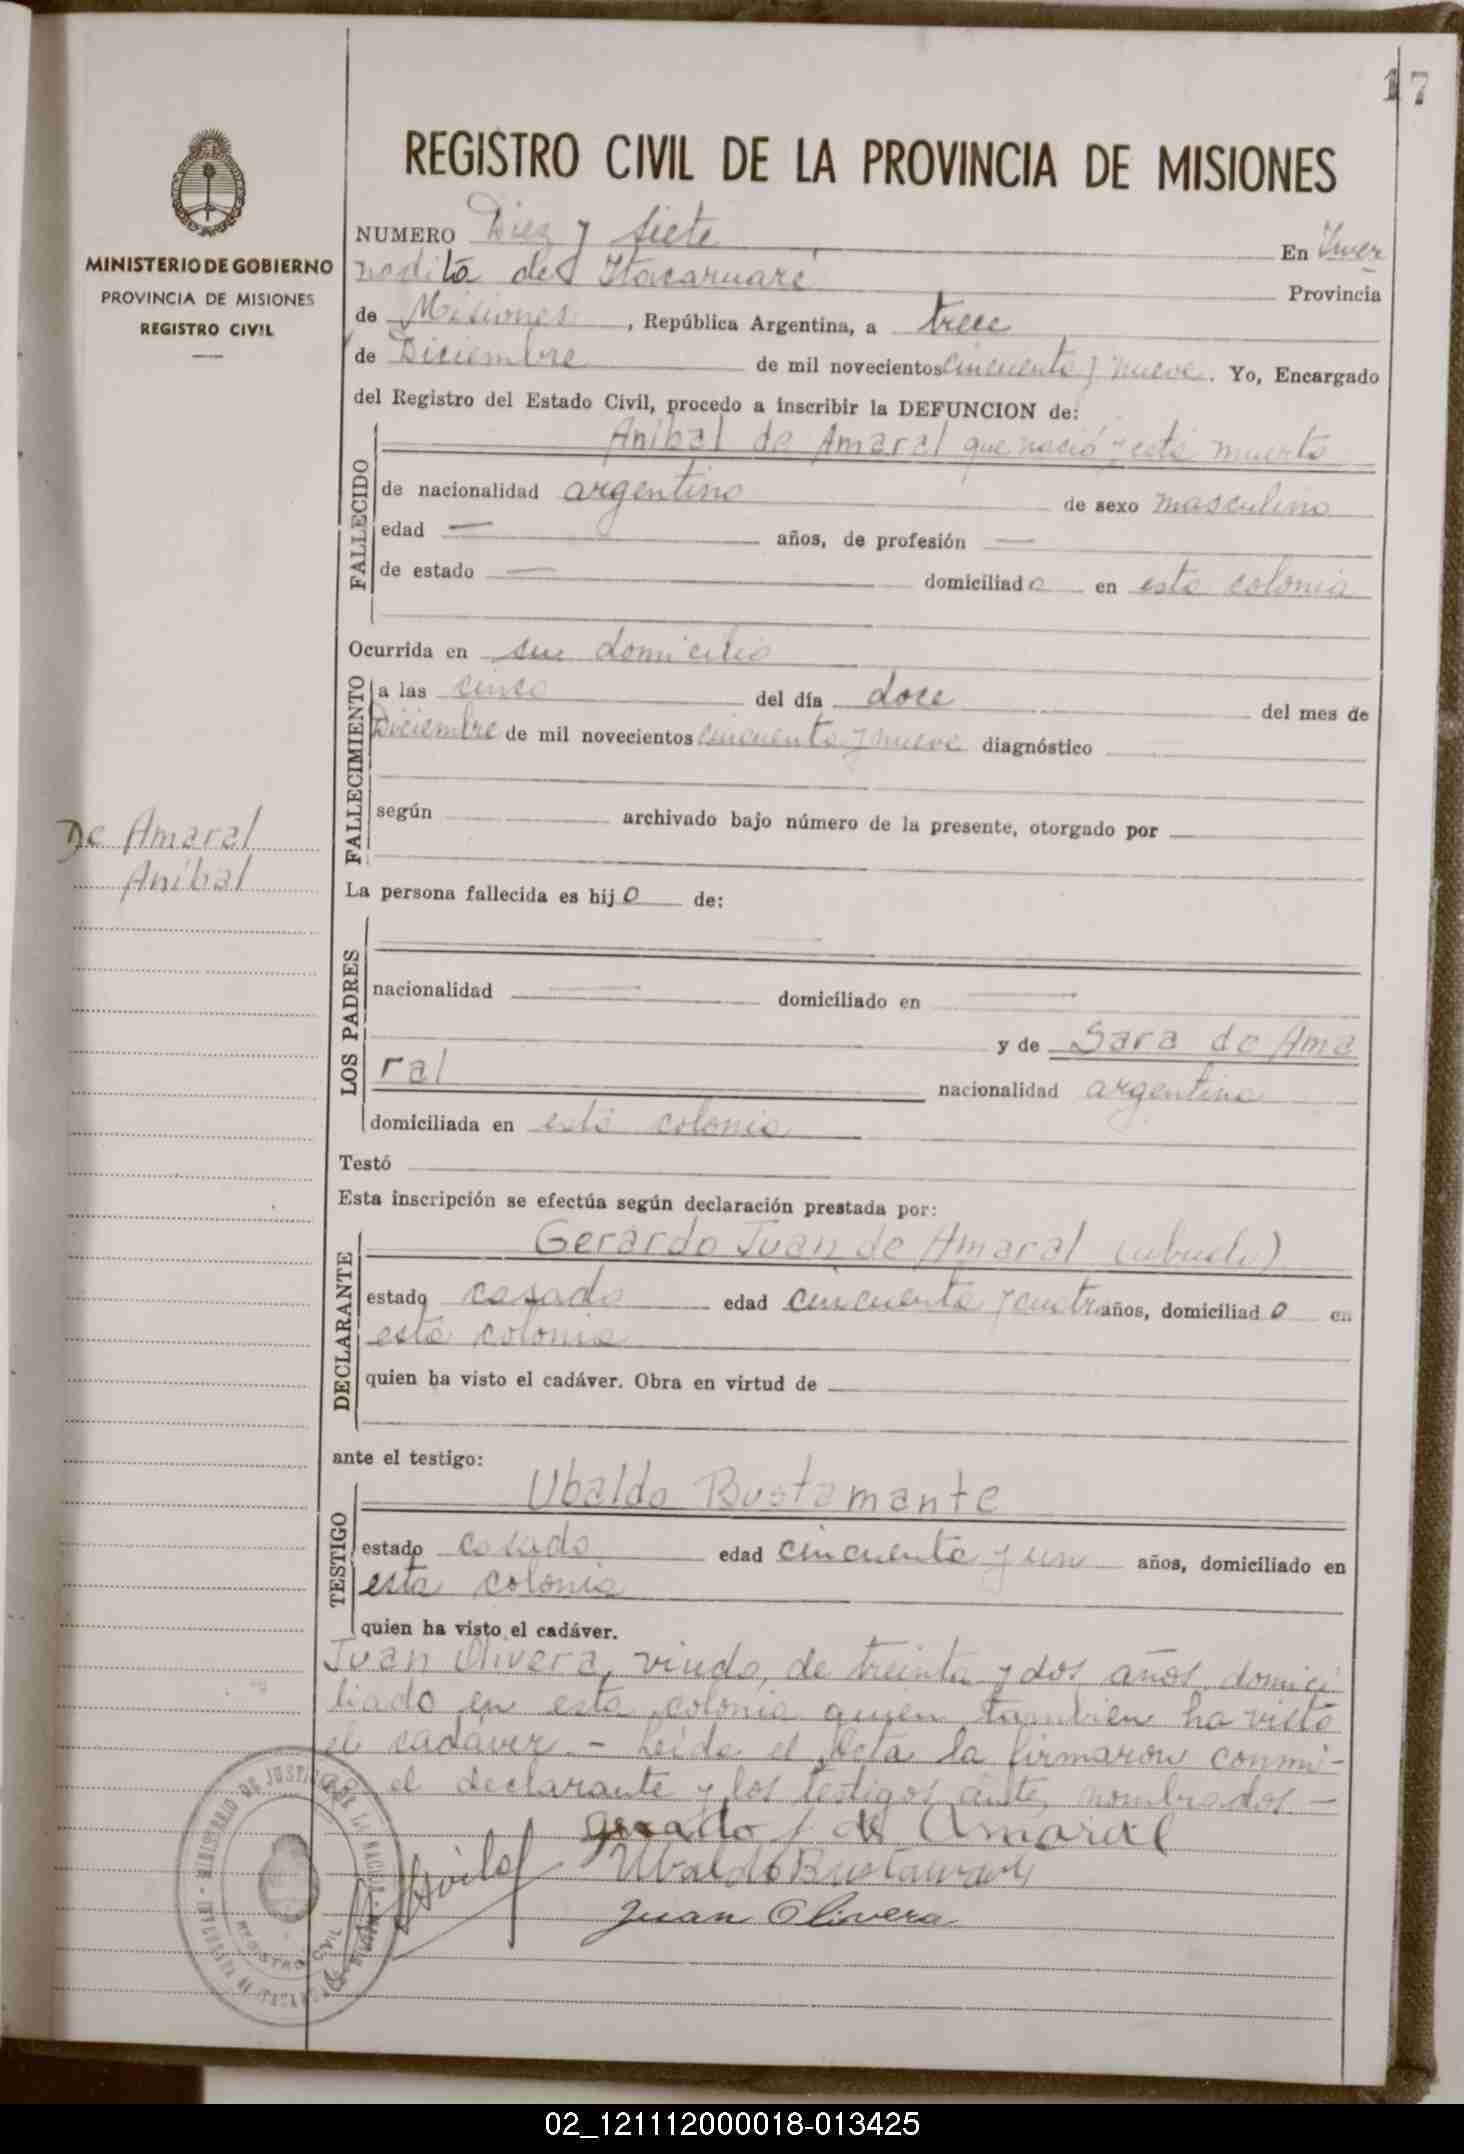 17
REGISTRO CIVIL DE LA PROVINCIA DE MISIONES
MINISTERIO DE GOBIERNO
PROVINCIA DE MISIONES
REGISTRO CIVIL
NUMERO Diez y siete En Inver
nadita de Itacaruare Provincia
de Misiones, República Argentina, a trece
de Diciembre de mil novecientos cincuenta y nueve. Yo, Encargado
del Registro del Estado Civil, procedo a inscribir la DEFUNCION de:
FALLECIDO
Anibal de Amaral que nació y está muerto
de nacionalidad argentino de sexo masculino
edad — años, de profesión —
de estado — domiciliado en esta colonia
Ocurrida en su domicilio
FALLECIMIENTO
a las cinco del día doce del mes de
Diciembre de mil novecientos cincuenta y nueve diagnóstico
según archivado bajo número de la presente, otorgado por
De Amaral
Anibal
La persona fallecida es hijo de:
LOS PADRES
nacionalidad — domiciliado en —
y de Sara de Ama
ral nacionalidad argentina
domiciliada en esta colonia
Testó
Esta inscripción se efectúa según declaración prestada por:
DECLARANTE
Gerardo Juan de Amaral (abuelo)
estado casado edad cincuenta y cuatro años, domiciliado en
esta colonia
quien ha visto el cadáver. Obra en virtud de
ante el testigo:
TESTIGO
Ubaldo Bustamante
estado casado edad cincuenta y un años, domiciliado en
esta colonia
quien ha visto el cadáver.
Juan Olivera, viudo, de treinta y dos años domici
liado en esta colonia quien tambien ha visto
el cadáver.- Leida el Acta la firmaron conmi-
go el declarante y los testigos ante nombrados.-
Gerardo J de Amaral
Ubaldo Bustamante
Juan Olivera
MINISTERIO DE JUSTICIA DE LA NACION
REGISTRO CIVIL
02_121112000018-013425